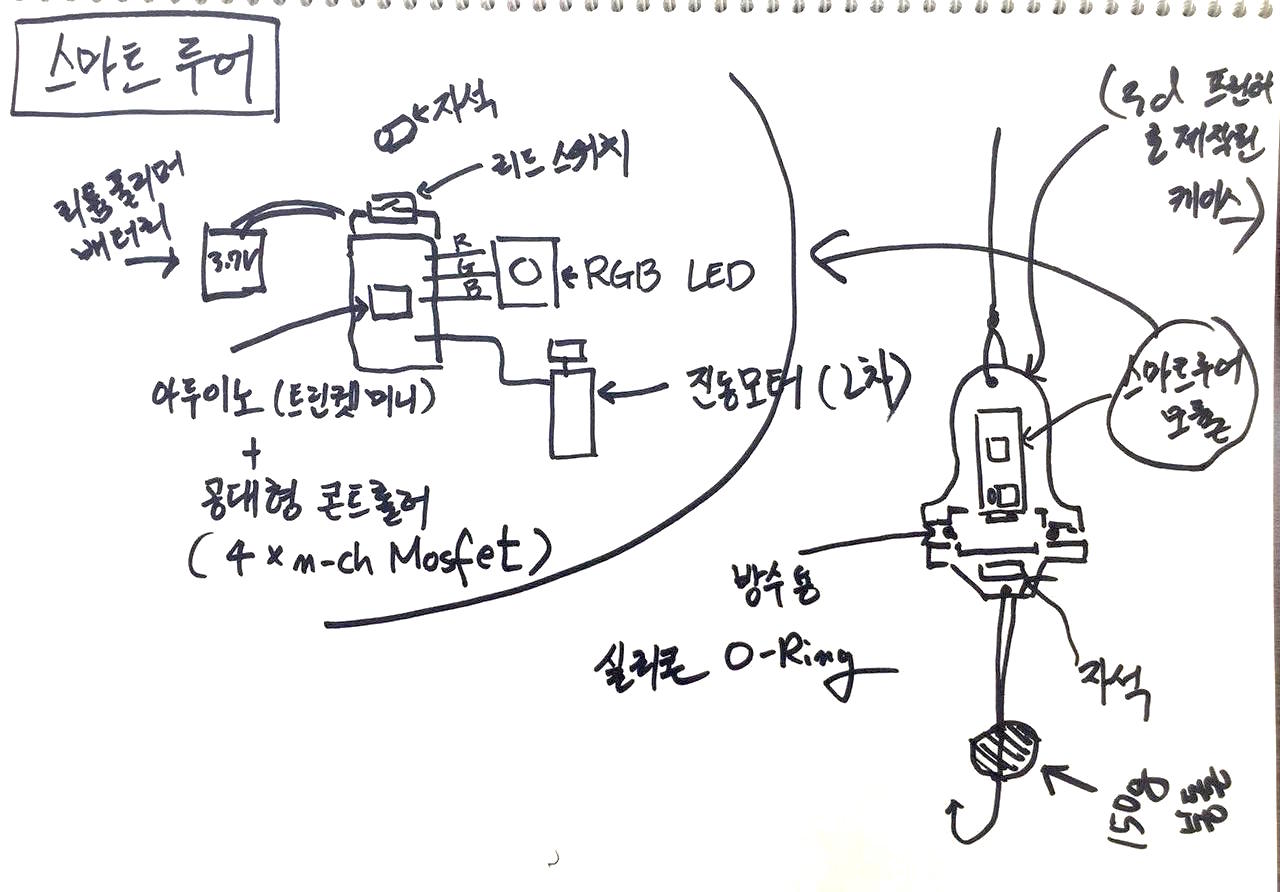 스마트 루어
자석
리드 스위치
리튬폴리머
배터리
3.7V
R
G
B
RGB LED
아두이노 (트린켓 미니)
+
공대형 콘트롤러
(4 × n-ch Mosfet)
진동모터 (2차)
(3d 프린터
로 제작된
케이스)
스마트루어
모듈
방수용
실리콘 O-Ring
자석
150g